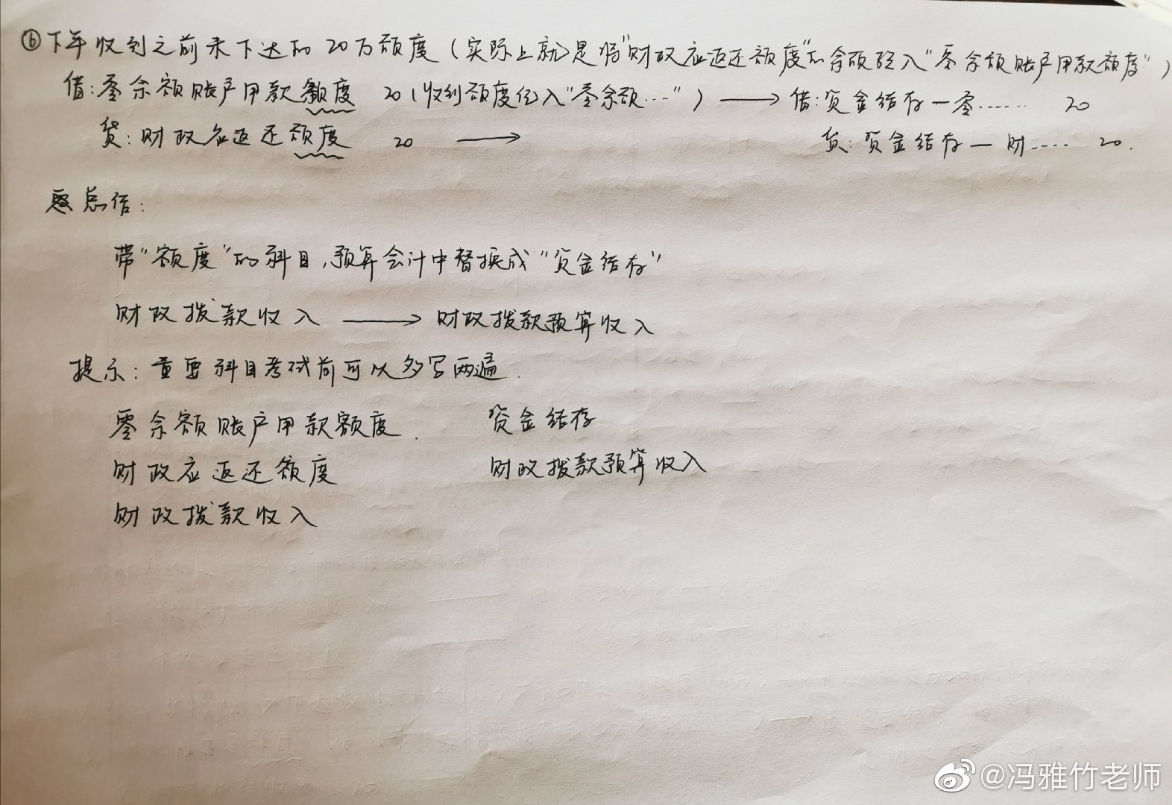 ⑥下年收到之前未下达的20万额度（实际上就是将"财政应返还额度"的余额转入"零余额账户用款额度"）
借:零余额账户用款额度 20（收到额度记入"零余额…"）——→ 借:资金结存—零…… 20
贷:财政应返还额度 20 ——→ 贷:资金结存—财…… 20.
总结:
带"额度"的科目,预算会计中替换成"资金结存"
财政拨款收入 ——→ 财政拨款预算收入
提示:重要科目考试前可以多写两遍.
零余额账户用款额度. 资金结存
财政应返还额度 财政拨款预算收入
财政拨款收入
@冯雅竹老师